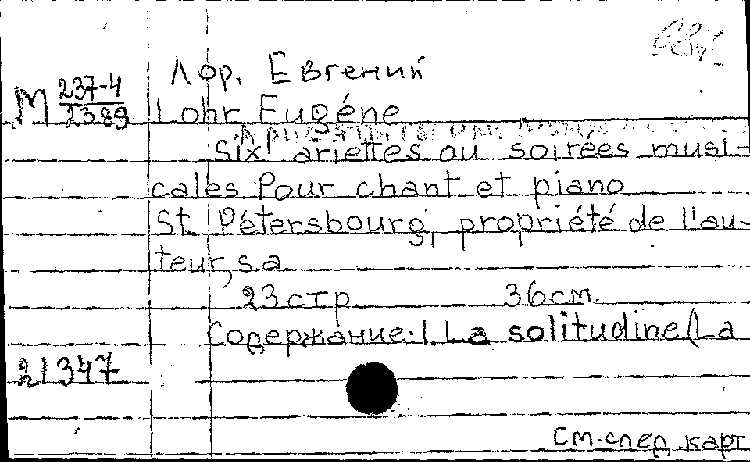 Лор. Евгений
М 237-4
2389
Lohr Eugéne
Six ariettes ou soirées musi-
cales Pour chant et piano
St Pétersbourg, propriété de l'au-
teur, s.a
23 стр 36 см.
Содержание: 1. La solitudine (La
21347
См. след карт